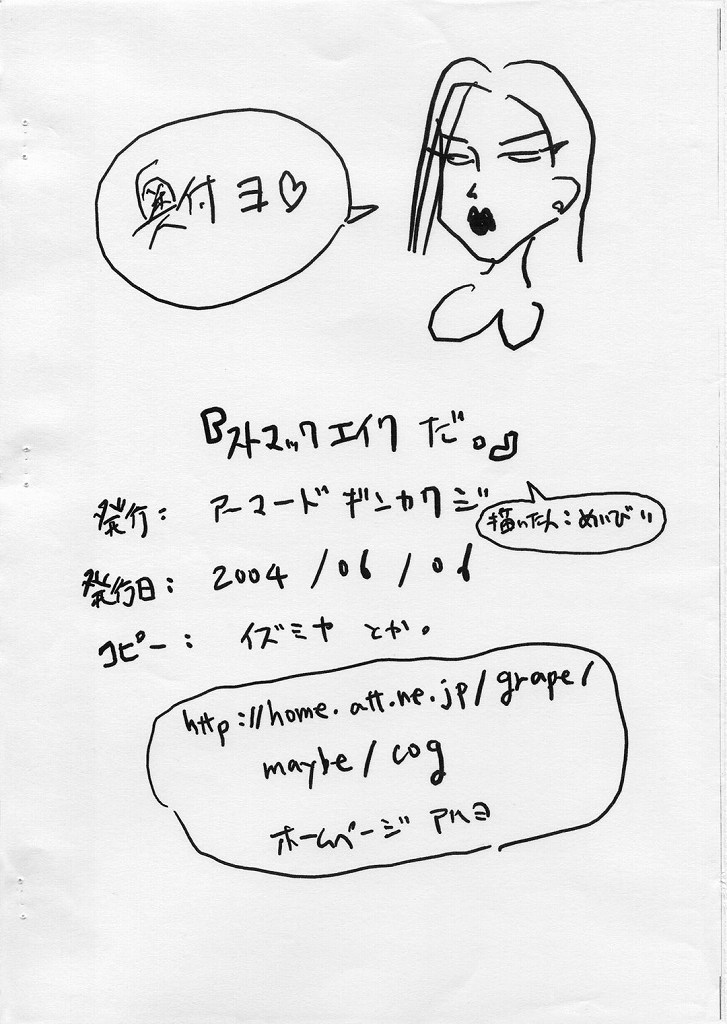 奥付ヨ♡
『ストマックエイクだ。』
発行：アーマードギンカクジ
描いたん：めいびぃ
発行日：2004/06/06
コピー：イズミヤとか。
http://home.att.ne.jp/grape/
maybe/cog
ホームページアルヨ